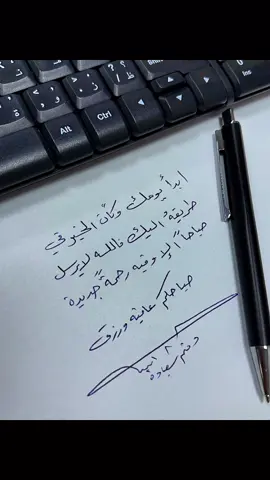 ابدأ يومك وكأن الخير في
طريقه إليك فالله لا يرسل
صباحاً إلا وفيه رحمة جديدة
صباحكم عافية ورزق
ودمتم بسعادة
Alt
Ctrl